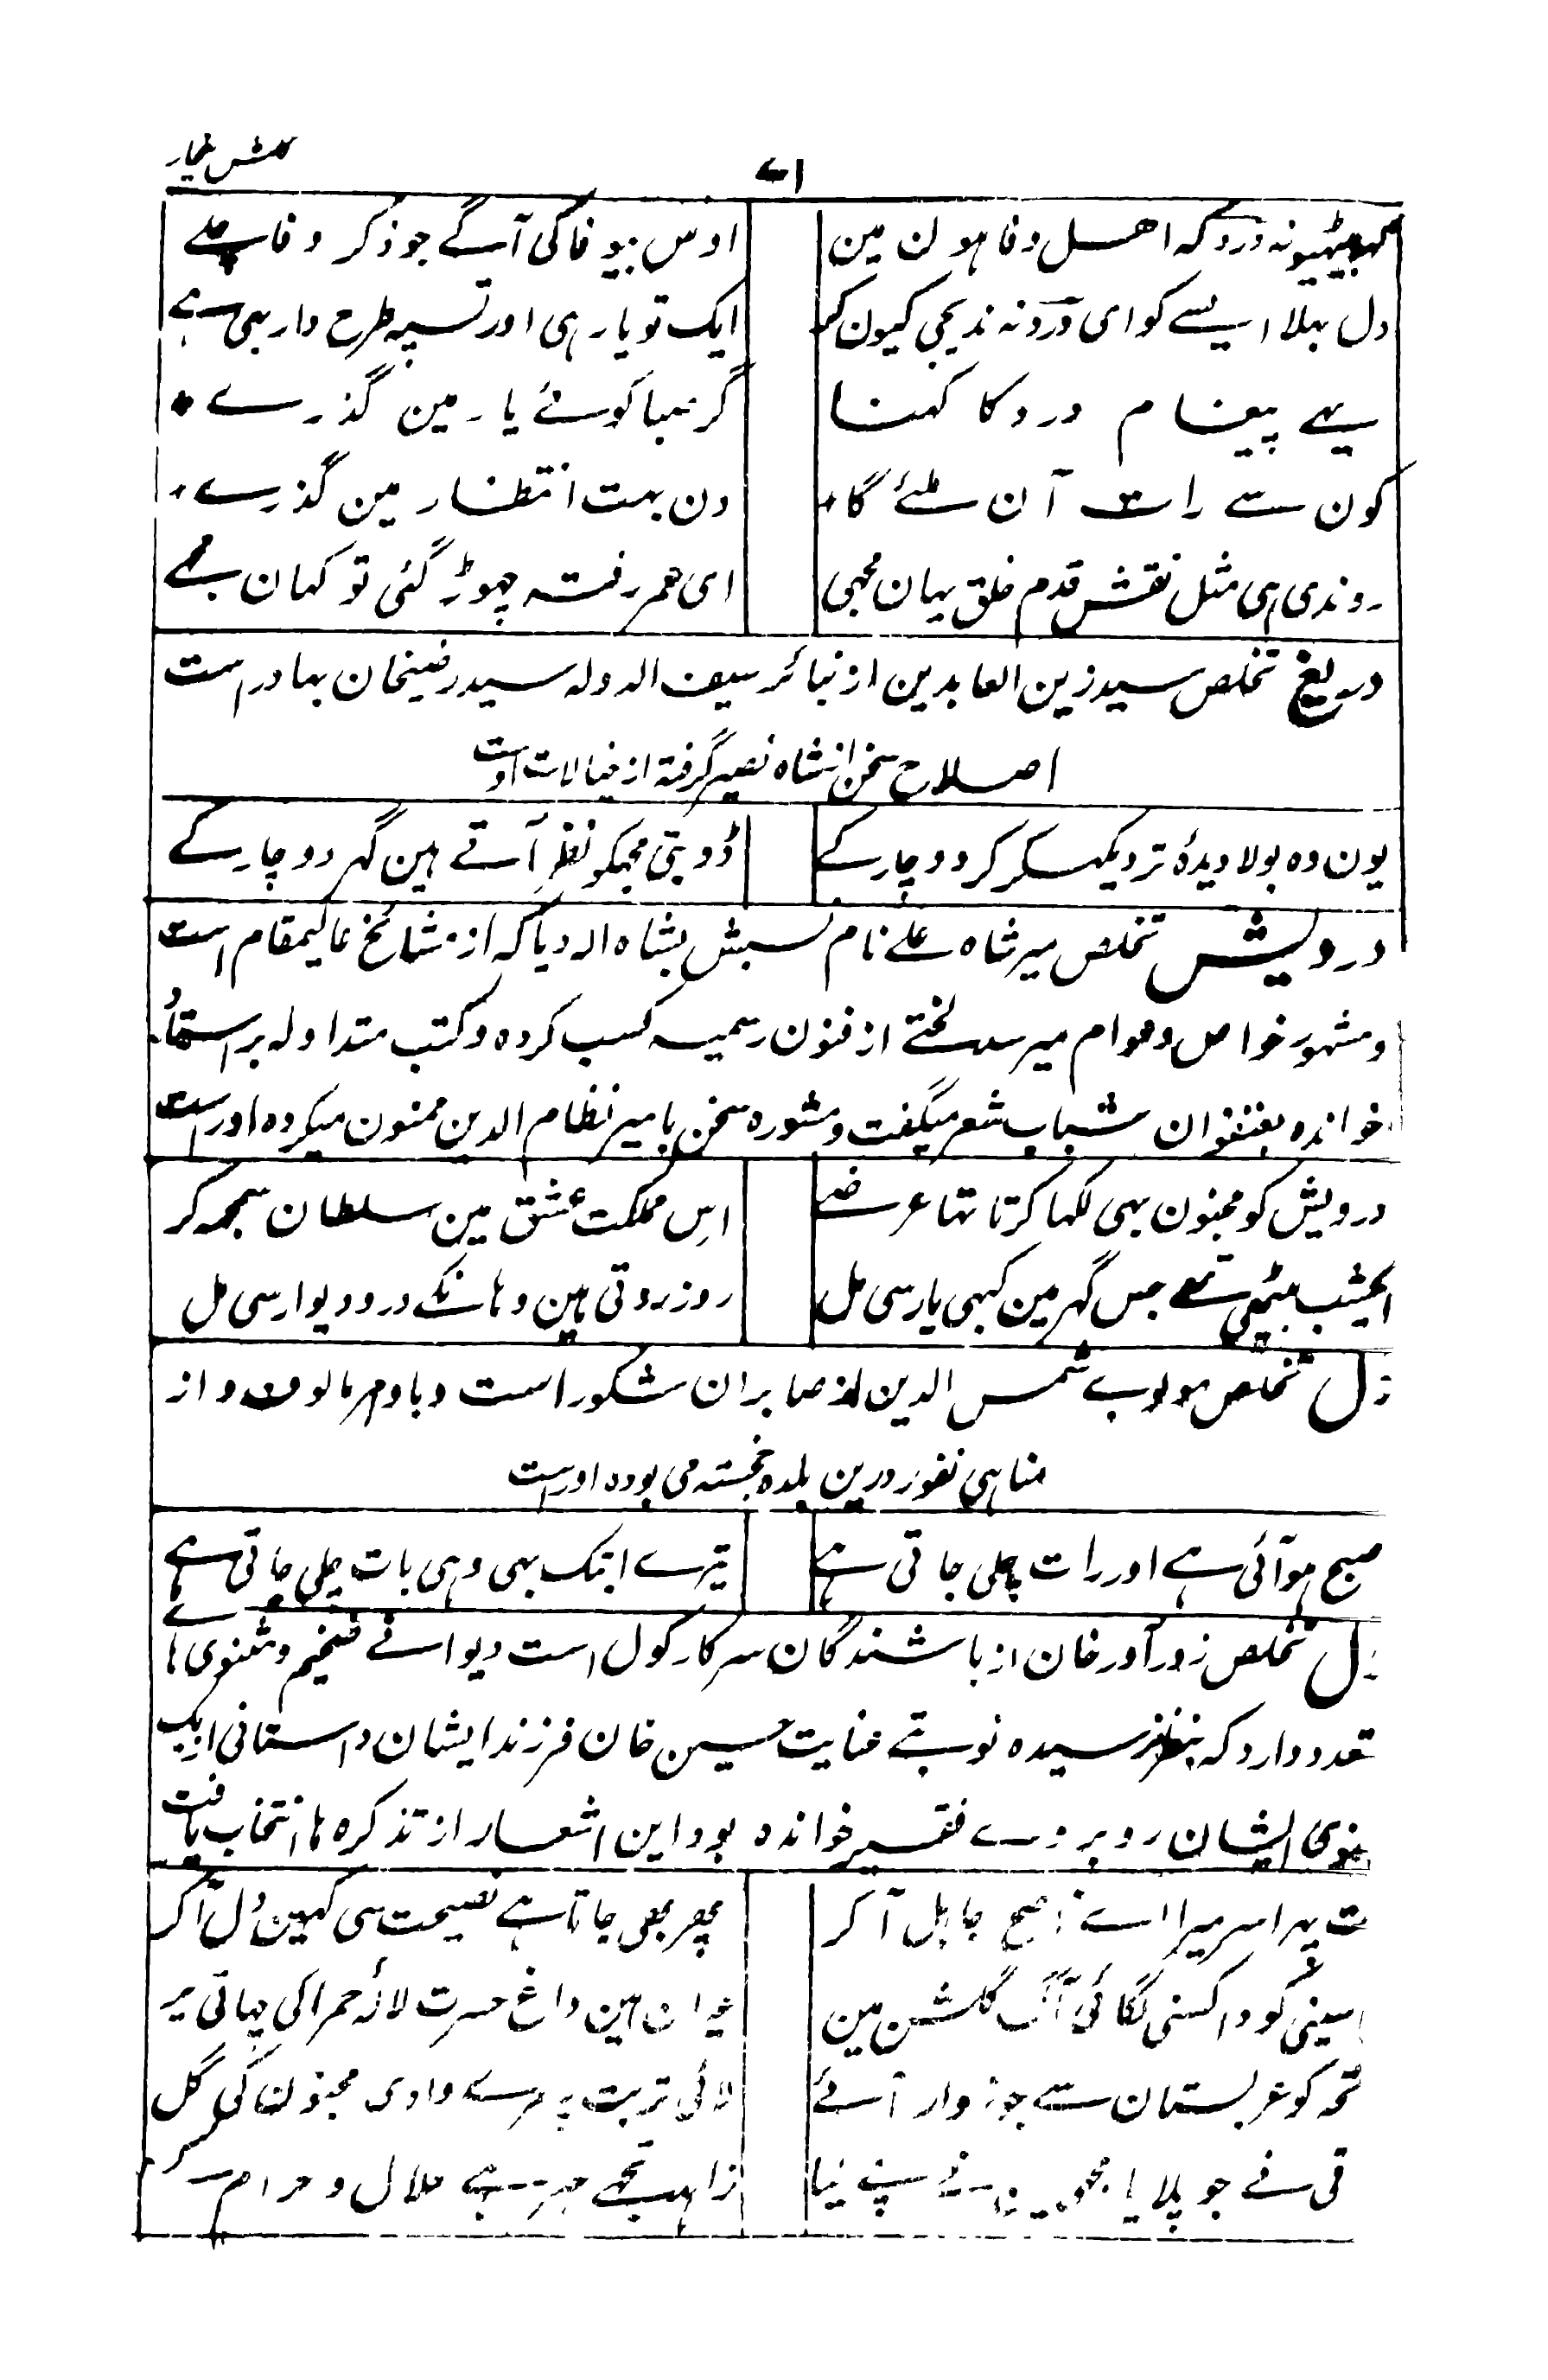 ۷۱
اوس بیوفا کی آگے جو ذکر وفا چلے
کہہ بیٹھیو نہ درد کہ اہل وفا ہون مین
ایک تو یار ہی اور تسپہ طرح دار بہی ہے
دل بہلا ایسے کو ای درد نہ دیجی کیون کر
گر صبا کوئے یار مین گذرے
یہے پیغام درد کا کہنا
دن بہت انتظار مین گذرے
کون سے رات آن ملئے گا
ای عمر رفتہ چہوڑ گئی تو کہان مجھے
روندی ہی مثل نقش قدم خلق یہان مجہی
دریغ تخلص سید زین العابدین از نبائر سیف الدولہ سید رضیخان بہادر است
اصلاح سخن از شاہ نصیر گرفتہ از خیالات اوست
یون وہ بولا دیدۂ تر دیکہکر کر دو چار کے
ڈوبتی مجہکو نظر آتے ہین گہر دو چار کے
درویش تخلص میر شاہ علے نام نسبش بشاہ الہ دیا کہ از مشائخ عالیمقام است
و مشہور خواص و عوام میرسد لختے از فنون رسمیہ کسب کردہ و کتب متداولہ بر استاد
خواندہ بعنفوان شباب شعر میگفت و مشورہ سخن با میر نظام الدین ممنون میکردہ اوراست
درویش کو مجنون بہی لکہا کرتا تہا عرضے
اس مملکت عشق مین سلطان سمجہ کر
ایکشب بیٹھی تھے جس گہر مین کبہی یار سی مل
روز روتی ہین وہانکے در و دیوار سی مل
دل تخلص مولوے شمس الدین از صابران شکور است و با وامر مالوف و از
مناہی نفور درین بلدہ خجستہ می بودہ اوراست
صبح ہو آئی ہے اور رات چلی جاتی ہے
تیرے ابتک بہی وہی بات چلی جاتی ہے
دل تخلص زورآور خان از باشندگان سرکار کول است دیوانے ضخیم و مثنوی ہاے
متعدد دارد کہ بنظر رسیدہ نوبتے عنایت حسین خان فرزند ایشان داستانی از یک
مثنوی ایشان روبروے فقیر خواندہ بود این اشعار از تذکرہ ہا انتخاب یافت
مت پہرا سر میرا اے ناصح جاہل آ کر
پھر بھی جاتا ہے نصیحت سی کہین دل آ کر
سینی کو دا کسنی لگائی آگ گلشن مین
داغ حسرت لالۂ حمرا کی چہاتی پر
کو عربستان سے جو زوار آئے
لائی تربت پہ مرے وادی مجنون کی گل
نے جو پلایا مجہی نے
زاہد تجھے ہے حلال و حرام